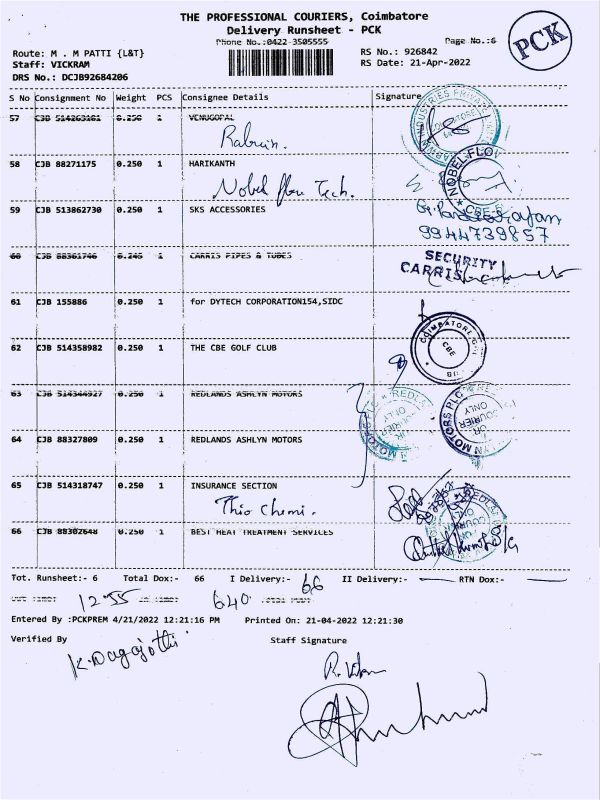 THE PROFESSIONAL COURIERS, Coimbatore
Delivery Runsheet - PCK
Phone No.:0422-3505555 Page No.:6
PCK
Route: M . M PATTI {L&T} RS No.: 926842
Staff: VICKRAM RS Date: 21-Apr-2022
DRS No.: DCJB92684206
S No Consignment No Weight PCS Consignee Details Signature
57 CJB 514263181 0.250 1 VENUGOPAL
58 CJB 88271175 0.250 1 HARIKANTH
Nobel flow Tech.
NOBEL FLO
59 CJB 513862730 0.250 1 SKS ACCESSORIES
9944739857
60 CJB 88361746 0.245 1 CARRIS PIPES & TUBES
SECURITY
CARRIS
61 CJB 155886 0.250 1 for DYTECH CORPORATION154,SIDC
62 CJB 514358982 0.250 1 THE CBE GOLF CLUB
COIMBATORE
CBE
63 CJB 514344927 0.250 1 REDLANDS ASHLYN MOTORS
64 CJB 88327809 0.250 1 REDLANDS ASHLYN MOTORS
65 CJB 514318747 0.250 1 INSURANCE SECTION
Thio Chemi.
66 CJB 88302648 0.250 1 BEST HEAT TREATMENT SERVICES
Tot. Runsheet:- 6 Total Dox:- 66 I Delivery:- 66 II Delivery:- RTN Dox:-
12-55 640
Entered By :PCKPREM 4/21/2022 12:21:16 PM Printed On: 21-04-2022 12:21:30
Verified By Staff Signature